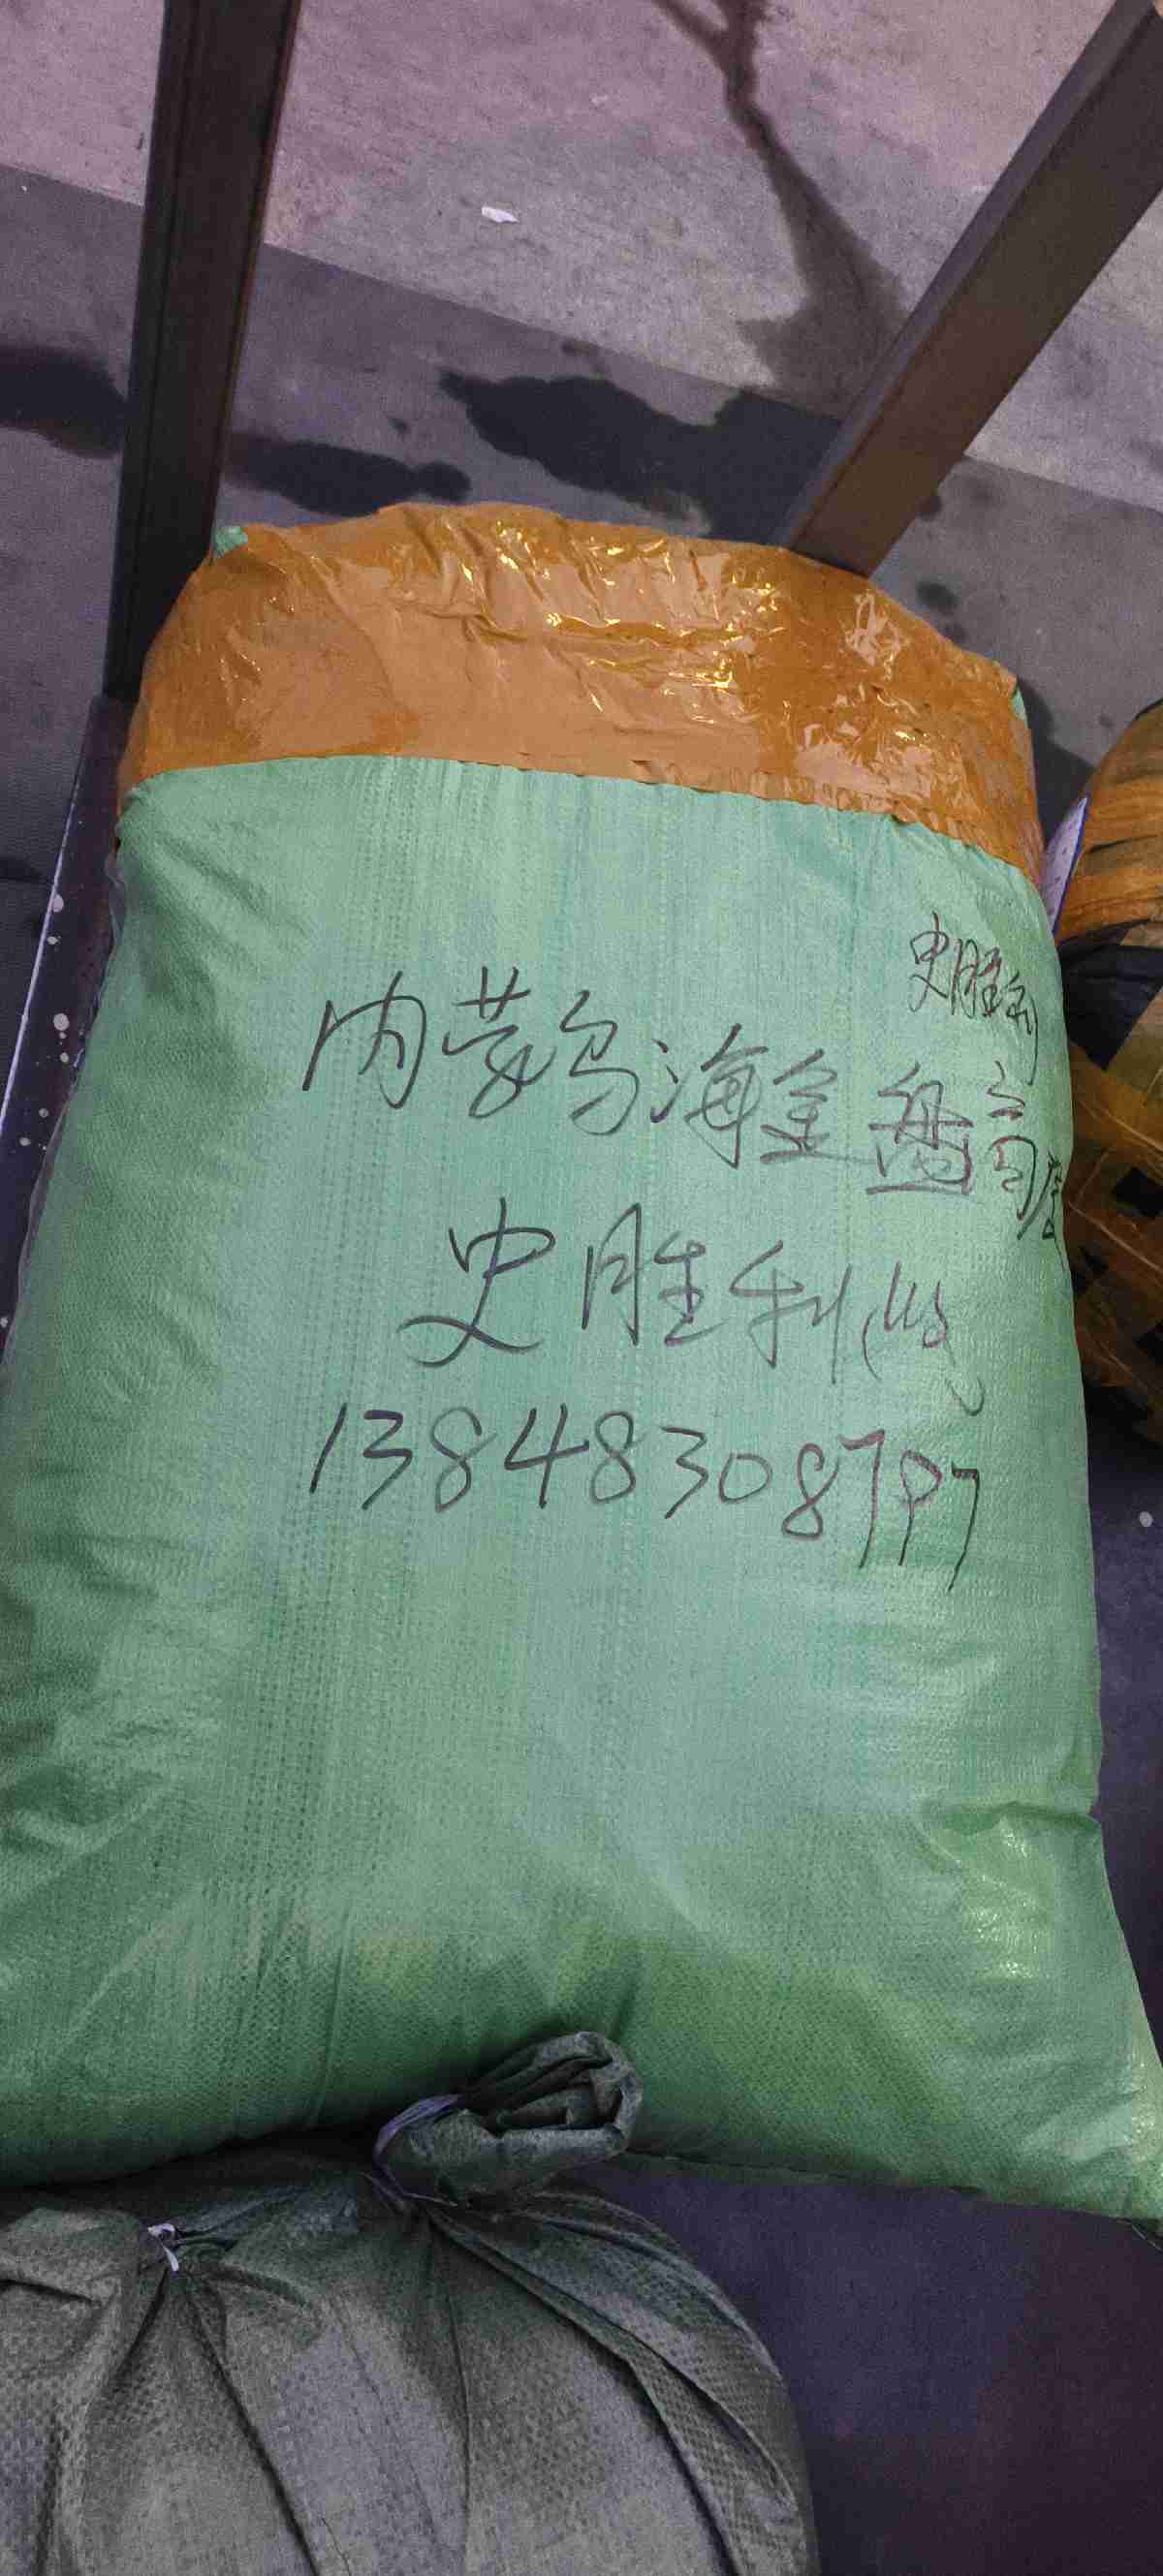 史胜利
内蒙乌海金盘高度
史胜利(收)
13848308797